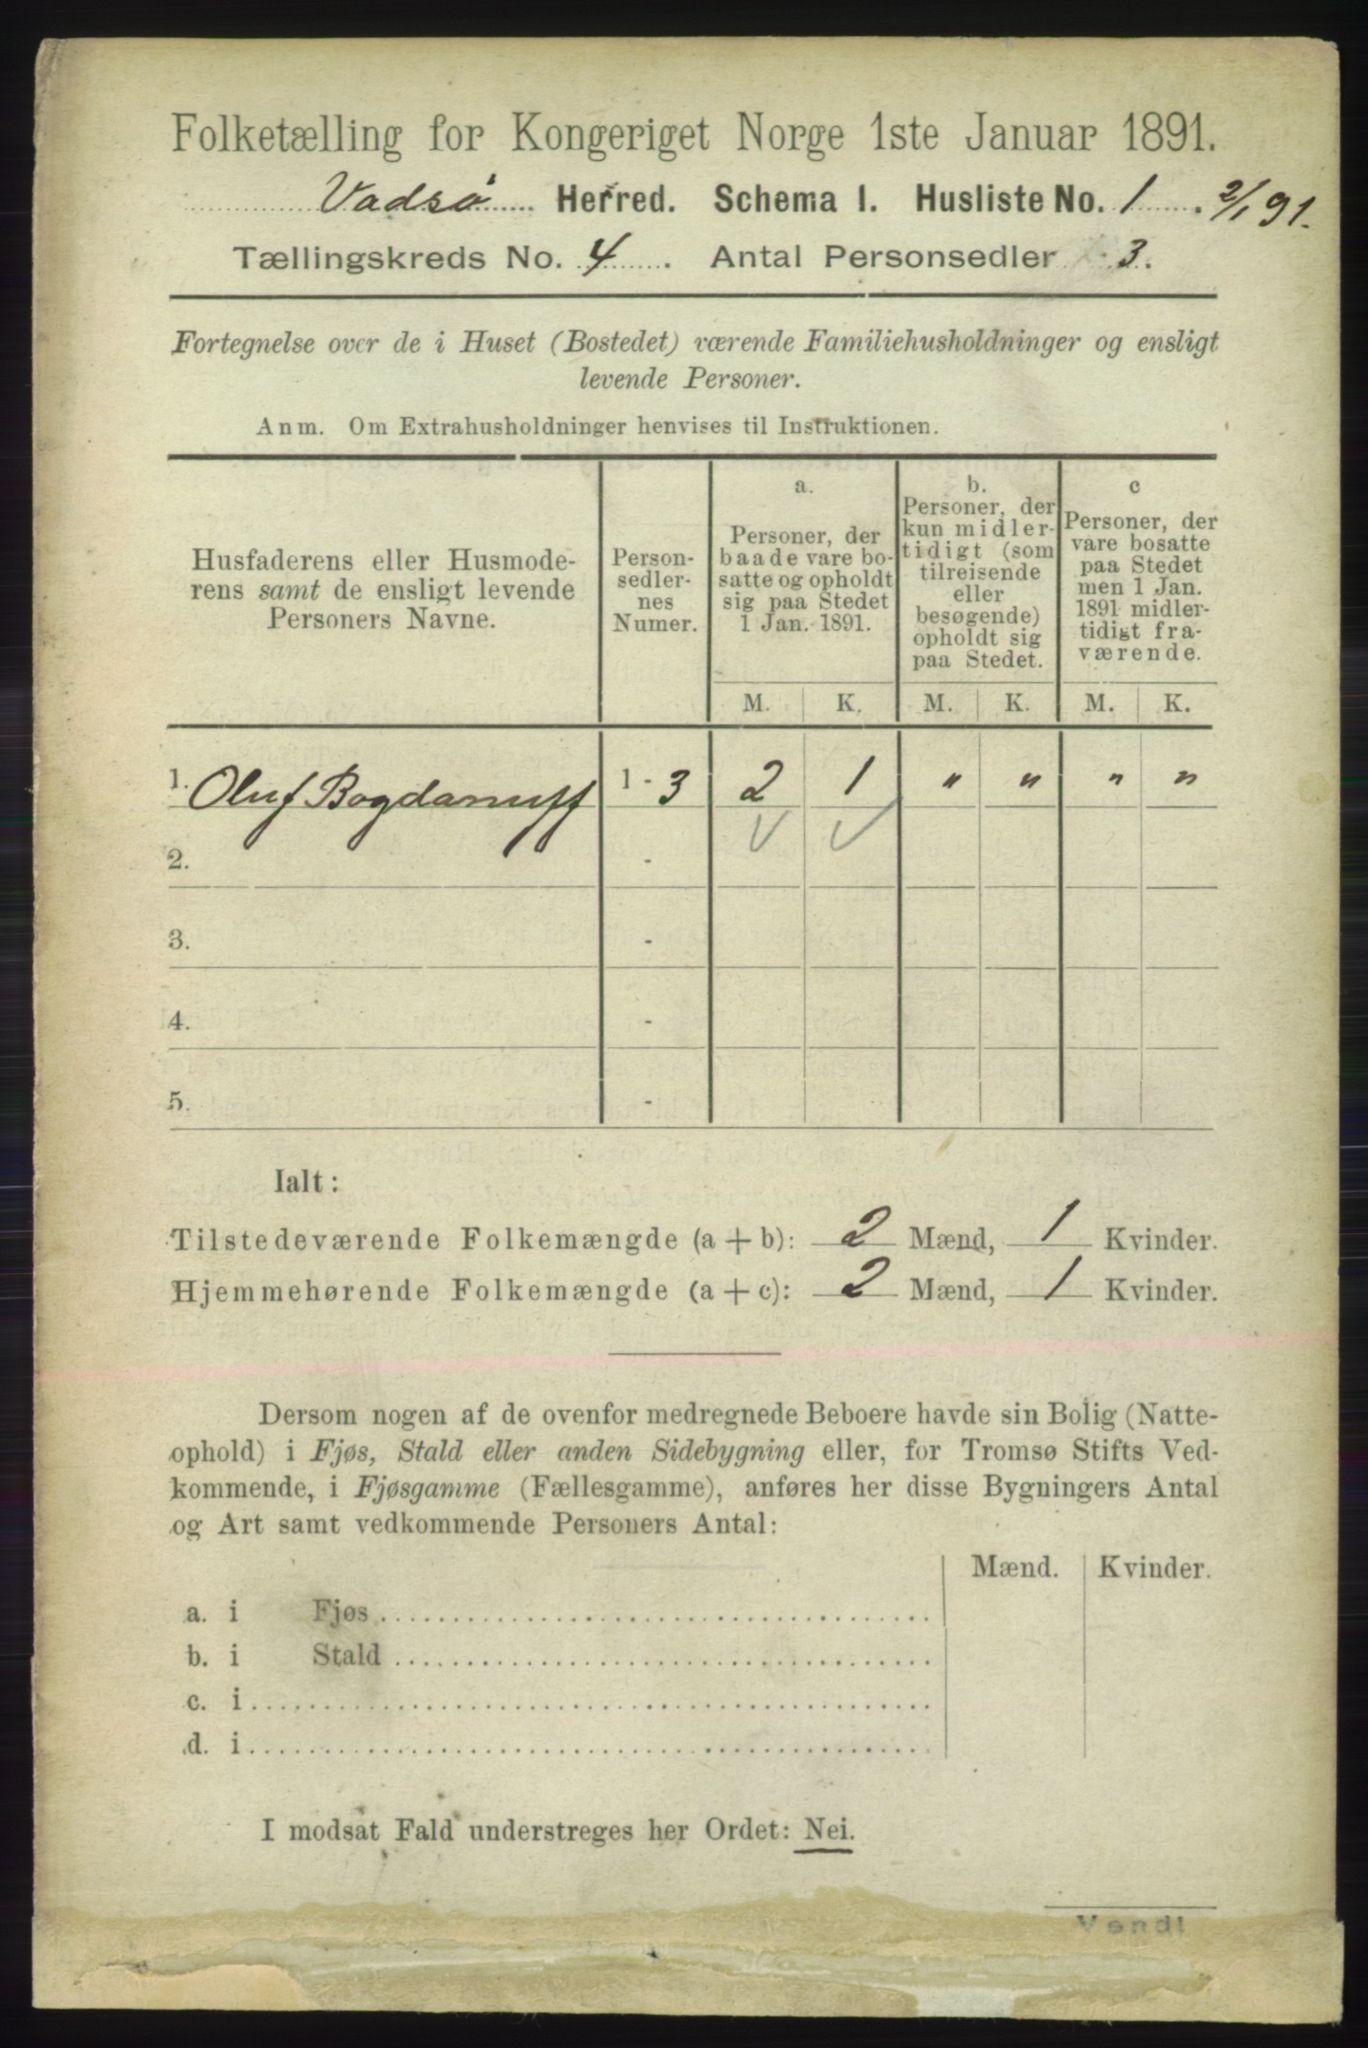 Folketælling for Kongeriget Norge 1ste Januar 1891.
Vadsø Herred. Schema I. Husliste No. 1. 2/1 91.
Tællingskreds No. 4. Antal Personsedler 3.
Fortegnelse over de i Huset (Bostedet) værende Familiehusholdninger og ensligt
levende Personer.
Anm. Om Extrahusholdninger henvises til Instruktionen.
Husfaderens eller Husmode-
rens samt de ensligt levende
Personers Navne.
Person-
sedler-
nes
Numer.
a.
Personer, der
baade vare bo-
satte og opholdt
sig paa Stedet
1 Jan. 1891.
M. K.
b.
Personer, der
kun midler-
tidigt (som
tilreisende
eller
besøgende)
opholdt sig
paa Stedet.
M. K.
c
Personer, der
vare bosatte
paa Stedet
men 1 Jan.
1891 midler-
tidigt fra-
værende.
M. K.
1. Oluf Bogdanuff 1 - 3 2 1 " " " "
2. -
3. -
4. -
5. -
Ialt:
Tilstedeværende Folkemængde (a + b): 2 Mænd, 1 Kvinder.
Hjemmehørende Folkemængde (a + c): 2 Mænd, 1 Kvinder.
Dersom nogen af de ovenfor medregnede Beboere havde sin Bolig (Natte-
ophold) i Fjøs, Stald eller anden Sidebygning eller, for Tromsø Stifts Ved-
kommende, i Fjøsgamme (Fællesgamme), anføres her disse Bygningers Antal
og Art samt vedkommende Personers Antal:
Mænd. Kvinder.
a. i Fjøs
b. i Stald
c. i
d. i
I modsat Fald understreges her Ordet: Nei.
Vend!